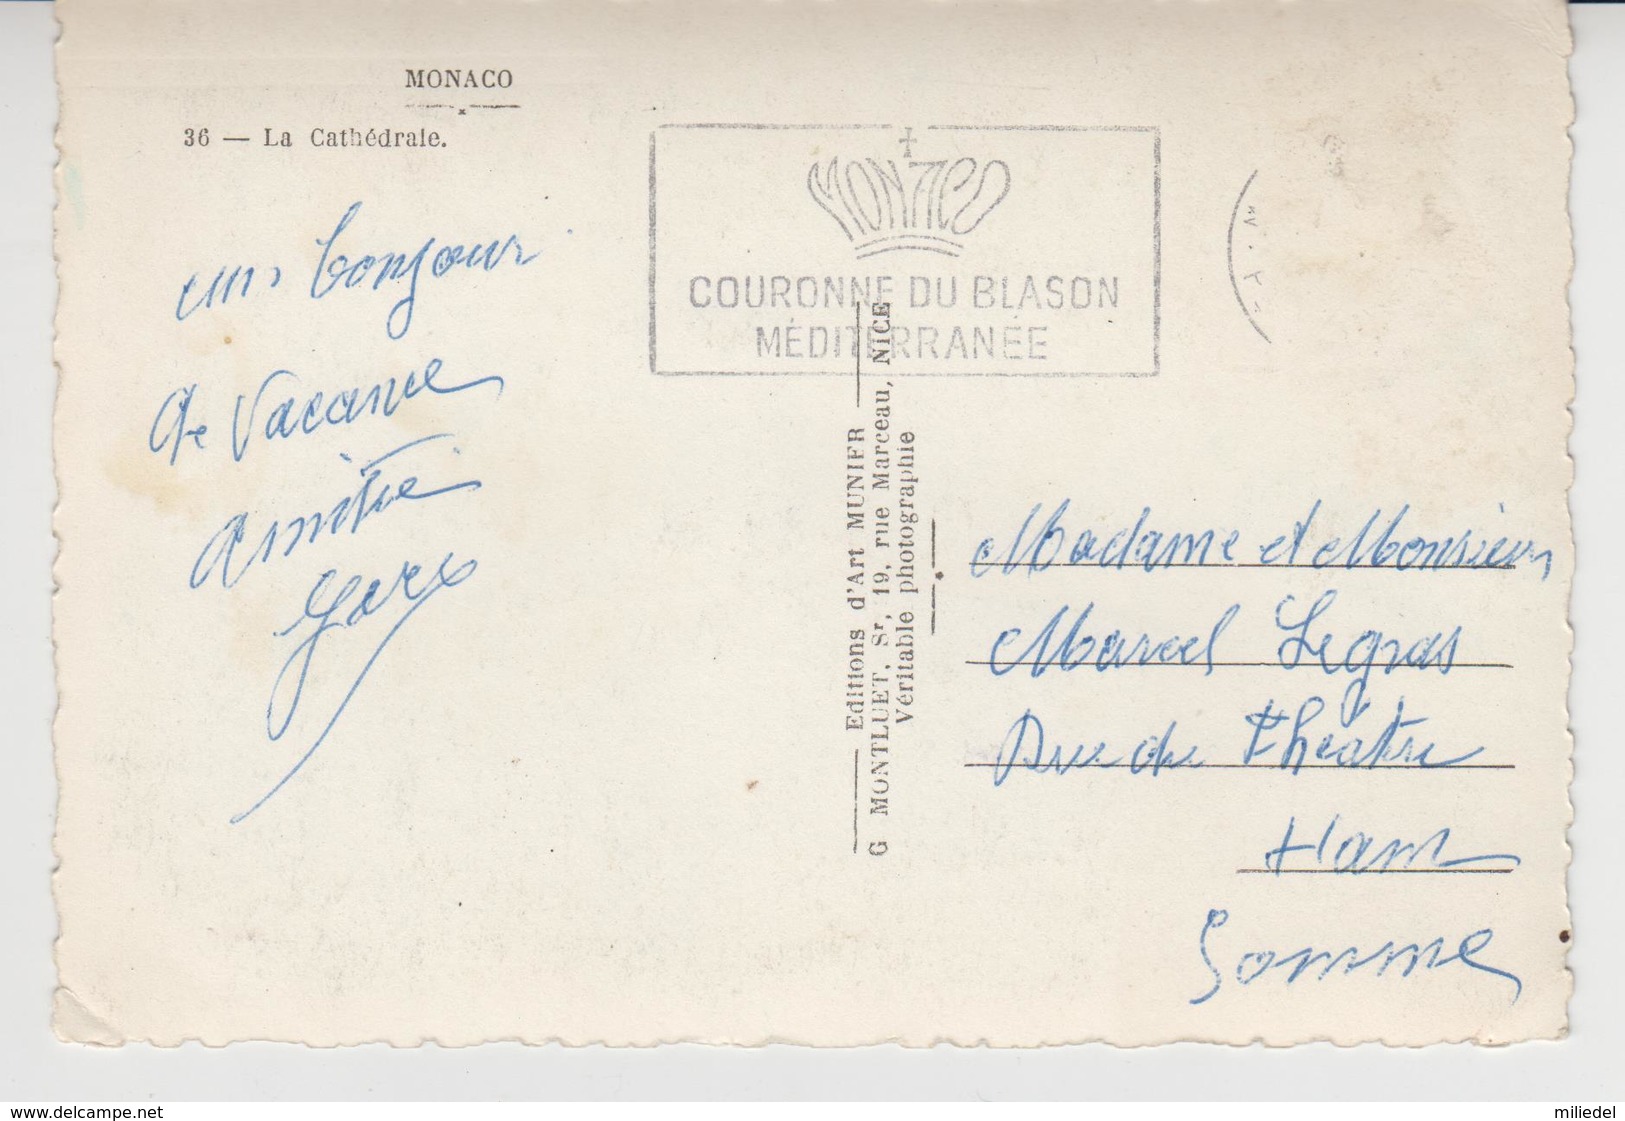 MONACO
36 — La Cathédrale.
un bonjour
de Vacance
amitié
MONACO
COURONNE DU BLASON
MÉDITERRANÉE
Editions d'Art MUNIER
G MONTLUET, Sr, 19, rue Marceau, NICE
Véritable photographie
Madame et Monsieur
Marcel Legras
Rue du Théâtre
Ham
Somme
www.delcampe.net
miliedel